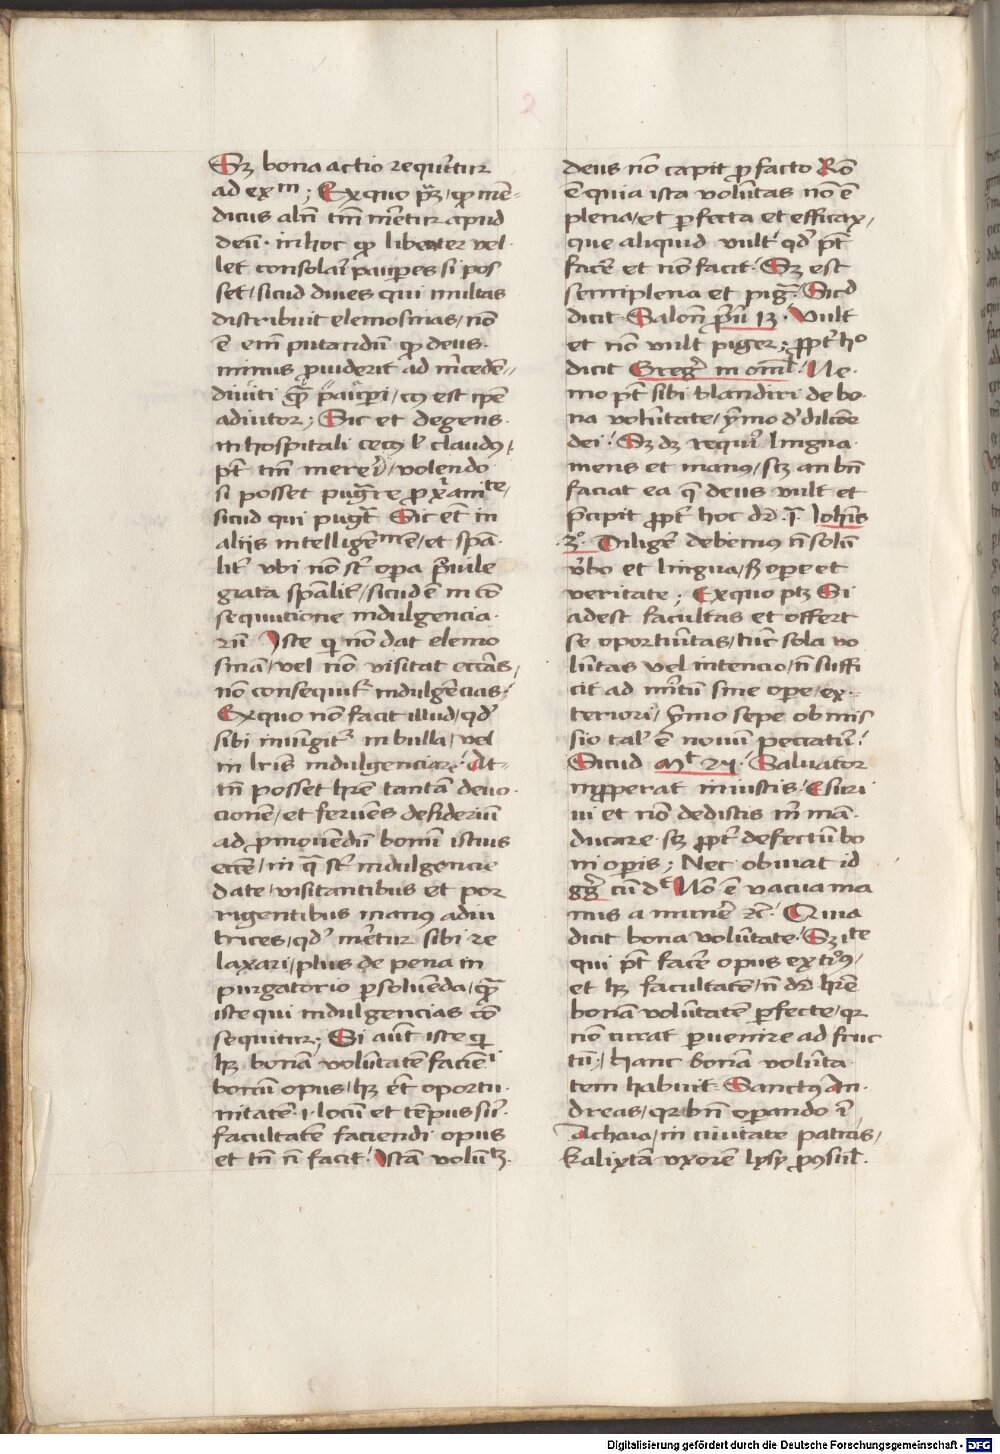 2
Sꝫ bona actio requiritur
ad exᵐ; Ex quo pꝫ, ꝙ men-
dicus aliñ tm̄ meretur apud
deū. in hoc ꝙ libenter vel-
let consolari paupes si pos
set, sicud diues qui multas
distribuit elemosinas, nō
ē em̄ putandū ꝙ deus.
minus prouiderit ad mcedē
diuiti qᷓ paupi, cꝯ est ipe
adiutor; Sic et degens.
in hospitali cecꝯ ł claudꝯ,
pt̄ tm̄ mereri, volendo
si posset pugre pro xⁱanitᵉ,
sicud qui pugt̄ Sic et in
alijs intelligēᵐᵉ, et spā-
litˀ vbi nō st̄ opa priuile
giata spālitˀ, sicud ē in cō
sequutione indulgencia-
rū Iste qui nō dat elemo
sinā, vel nō visitat ecc̄ias,
nō consequitˀ indulgēcias.
Ex quo nō facit illud, qdˀ
sibi iniūgitˀ in bulla, vel
in lr̄is indulgenciarꝝ At-
tn̄ posset hr̄e tantā deuo-
cionē, et feruēs desideriū
ad ꝓmouendū bonū istius
ecc̄e, in qᷓ st̄ indulgencie
date, visitantibus et por
rigentibus manꝯ adiu
trices, qdˀ m̄etur sibi re
laxari, plus de pena in
purgatorio ꝑsoluenda, qᷓ
iste qui indulgencias cō
sequitur; Si aut̄ iste qui
hꝫ bonā volūtatē faciēⁱ
bonū opus, hꝫ et̄ oportu-
nitatē .i. locū et tēpus siuˀ
facultatē faciendi opus
et tn̄ n̄ facit. Istā volūtꝫ
deus nō capit pro facto Rō
ē quia ista volūtas nō ē
plena, et ꝑfecta et efficax,
que aliquid vult qdˀ pt̄
facē et nō facit. Sꝫ est
semiplena et pigᷓ. Sicd
dicit Salon̄ ꝓuˀ 13. Vult
et nō vult piger; ꝓpt̄ hᵒ
dicit Gregˀ in oml̄. Ne-
mo pt̄ sibi blandiri de bo-
na volūtate, ymo dˀ dilcōe
dei. Sꝫ dꝫ requirˀ lingua
mens et manꝯ, sꝫ an bn̄
faciat ea q̄ deus vult et
p̄cipit ꝓpt̄ hoc dr̄ .i. Ioh̄is
3ᵒ. Diligē debemꝯ n̄ solū
vˀbo et lingua, sꝫ ope et
veritate; Ex quo ptꝫ Si
adest facultas et offert
se oportūitas, tūc sola vo
lūtas vel intencio, n̄ suffi
cit ad mˀitū sine ope, ex-
teriori, ymo sepe ob mis
sio talˀ ē nouū peccatū.
Sicud Mᵗ 25. Saluator
improperat iniustis. Esuri
ui et nō dedistis m̄ mā-
ducare sꝫ ꝓpt̄ defectū bo
ni opis; Nec obuiat id
ggˀ cū dᵗ Nō ē vacua ma
nus a munē ⁊c̄. Quia
dicit bona volūtate. Sꝫ itᵉ
qui pt̄ facē opus extiꝯ,
et hꝫ facultatē, n̄ dr̄ hr̄e
bonā volūtatē ꝑfecte, qr̄
nō curat ꝑuenire ad fruc
tū, hanc bonā volūta-
tem habuit Sanctꝯ An-
dreas, qr̄ bn̄ opando ī
Achaia, in ciuitate patras,
kalixtā vxorē lysy ꝓꝯsul̄.
Digitalisierung gefördert durch die Deutsche Forschungsgemeinschaft - DFG